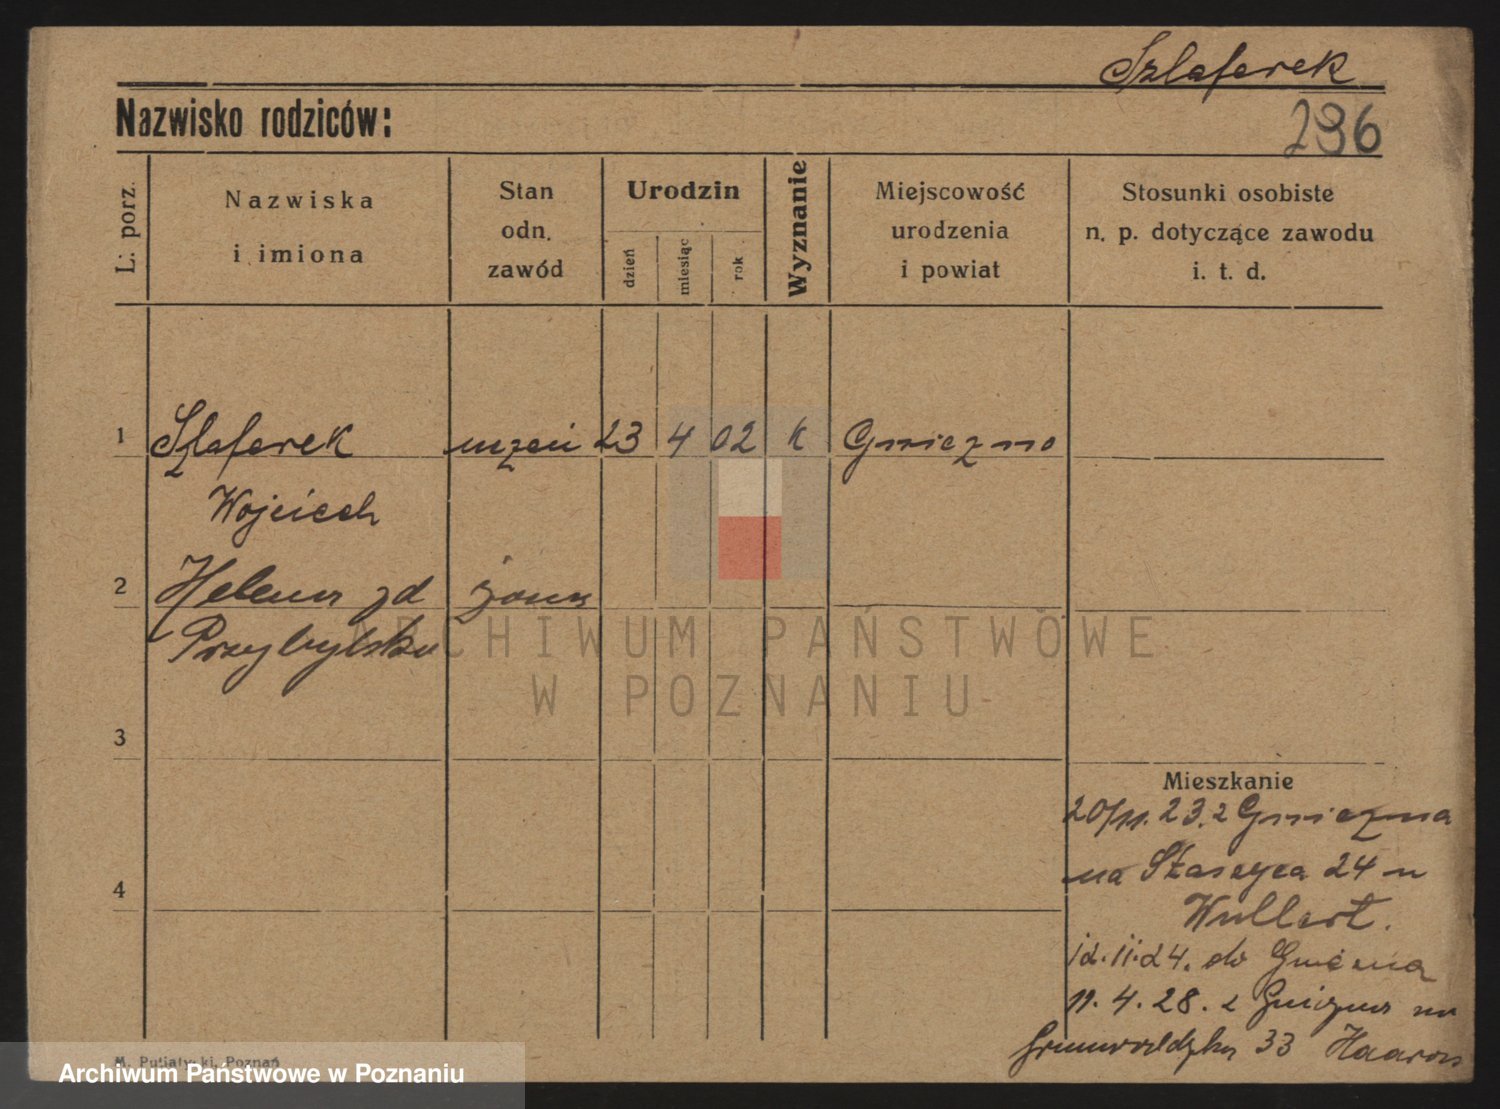 Szlaferek
Nazwisko rodziców:
296
L. porz.
Nazwiska
i imiona
Stan
odn.
zawód
Urodzin
dzień
miesiąc
rok
Wyznanie
Miejscowość
urodzenia
i powiat
Stosunki osobiste
n. p. dotyczące zawodu
i. t. d.
1 Szlaferek uczeń 23 4 02 k Gniezno
Wojciech
2 Helena zd żona
Przybylska
ARCHIWUM PAŃSTWOWE
W POZNANIU
3
Mieszkanie
20/11. 23. z Gniezna
na Staszyca 24 u
4
Wullert.
12.11.24. do Gniezna
11.4.28. z Gniezna na
Grunwaldzka 33
M. Putiatycki, Poznań
Archiwum Państwowe w Poznaniu